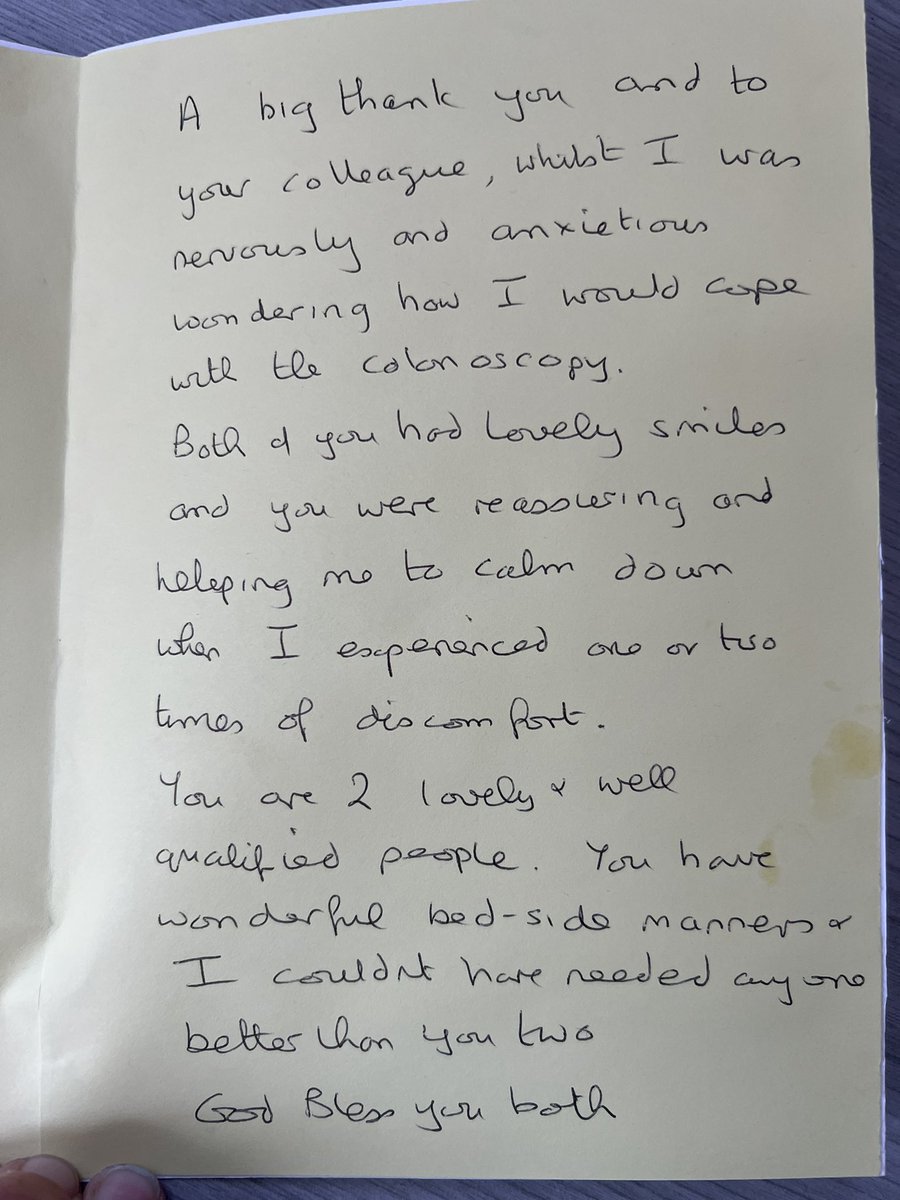 A big thank you and to
your colleague, whilst I was
nervously and anxietious
wondering how I would cope
with the colonoscopy.
Both of you had lovely smiles
and you were reassuring and
helping me to calm down
when I experienced one or two
times of discomfort.
You are 2 lovely & well
qualified people. You have
wonderful bed-side manners &
I couldn't have needed anyone
better than you two
God Bless you both